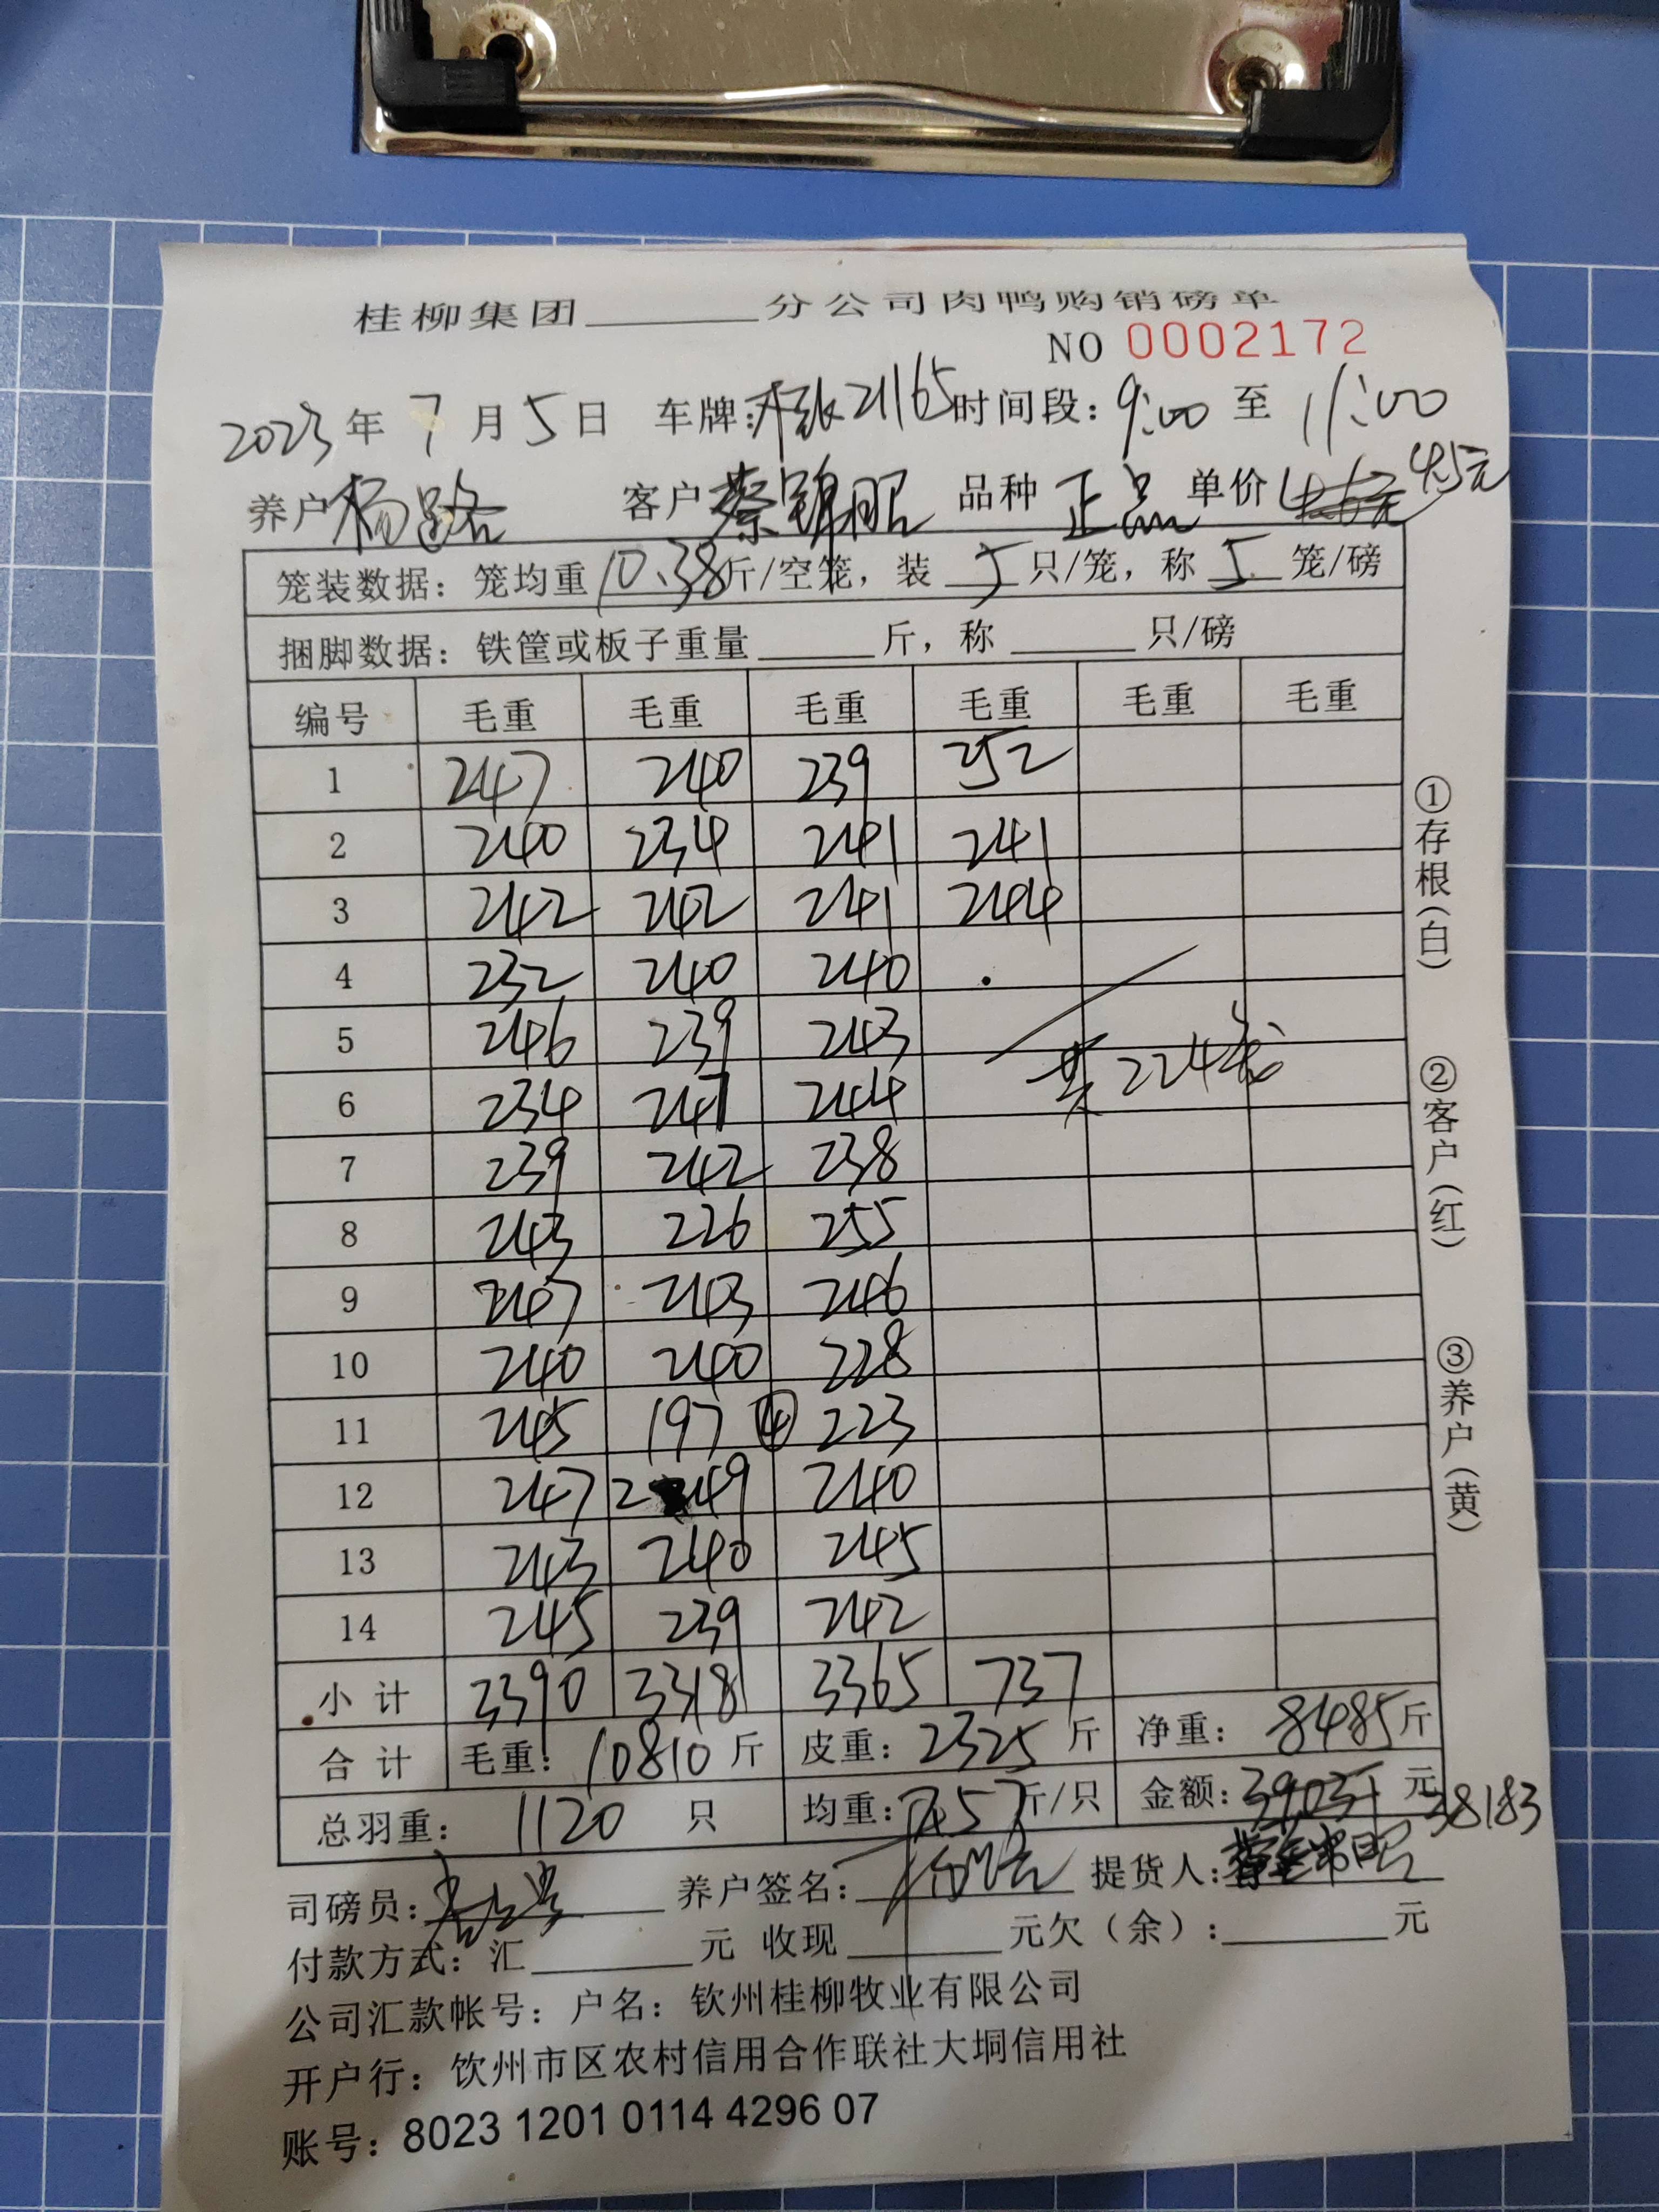 桂柳集团______分公司肉鸭购销磅单
NO 0002172
2023年7月5日 车牌: 21165 时间段: 9:00 至 11:00
养户 杨路 客户 蔡锦昭 品种 正品 单价 4.6元 4.5元
笼装数据: 笼均重 10.38 斤/空笼, 装 5 只/笼, 称 5 笼/磅
捆脚数据: 铁筐或板子重量______斤, 称______只/磅
编号 毛重 毛重 毛重 毛重 毛重 毛重
1 247 240 239 252
2 240 234 241 241
3 242 242 241 244
4 232 240 240
5 246 239 243
6 234 247 244
共224笼
7 239 242 238
8 243 226 255
9 247 243 246
10 240 240 228
11 245 197 ④ 223
12 247 249 240
13 243 240 245
14 245 239 242
小计 3390 3318 3365 737
合计 毛重: 10810 斤 皮重: 2325 斤 净重: 8485 斤
总羽重: 1120 只 均重: 7.57 斤/只 金额: 39031 元 38183
司磅员: 养户签名: 杨路 提货人: 蔡锦昭
付款方式: 汇______元 收现______元欠(余):______元
公司汇款帐号: 户名: 钦州桂柳牧业有限公司
开户行: 钦州市区农村信用合作联社大垌信用社
账号: 8023 1201 0114 4296 07
①存根(白)
②客户(红)
③养户(黄)